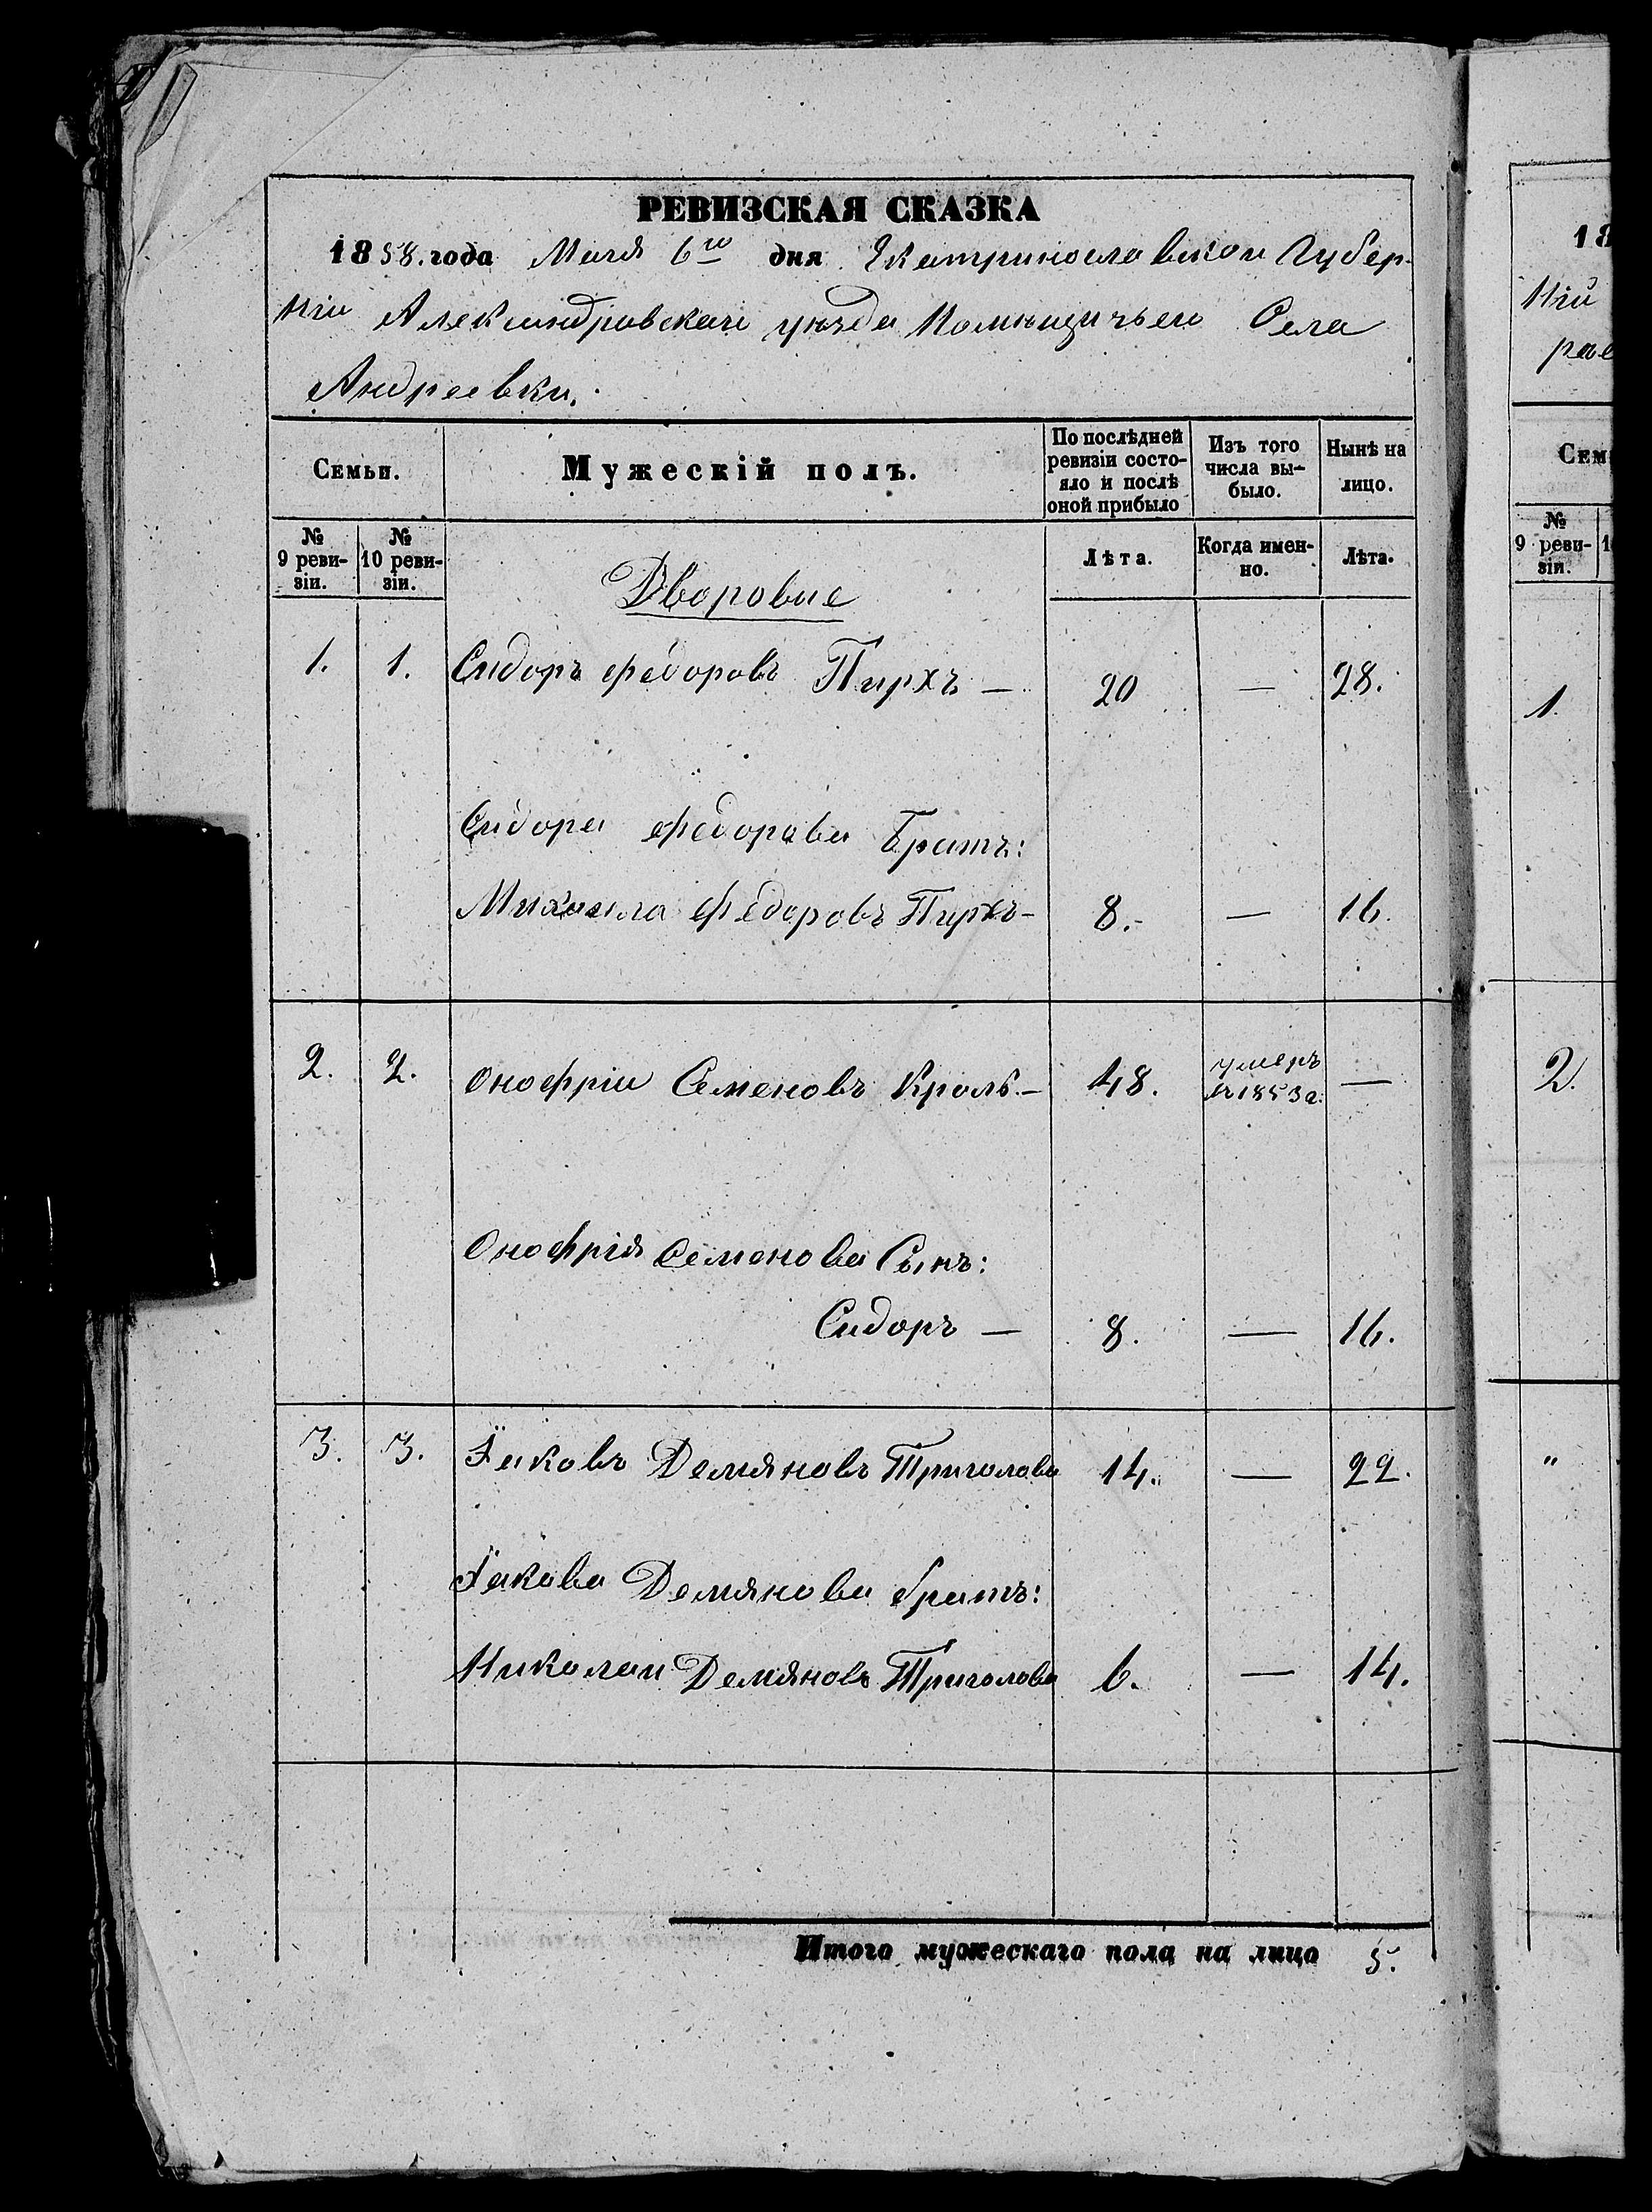 РЕВИЗСКАЯ СКАЗКА
1858. года Мая 6го дня Екатринославской Губер-
ніи Александровскаго уѣзда Помѣщичьей Села
Андреевки.
Семьи. Мужескій полъ. По послѣдней ревизіи состояло и послѣ оной прибыло Изъ того числа вы-было. Нынѣ на лицо.
№ 9 реви-зіи. № 10 реви-зіи. Лѣта. Когда имен-но. Лѣта.
Дворовые
1. 1. Сидоръ Федоровъ Пирхъ — 20 — 28.
Сидора Федорова Братъ:
Михаила Федоровъ Пирхъ — 8. — 16.
2. 2. Онофрій Семеновъ Кроль — 48. умеръ —
въ 1853 г.
Онофрія Семенова Сынъ:
Сидоръ — 8. — 16.
3. 3. Яковъ Демяновъ Триголовъ 14. — 22.
Якова Демянова братъ:
Николай Демяновъ Триголовъ 6. — 14.
Итого мужескаго пола на лицо 5.
18
ніи
рае
Сем
№ 9 реви-зіи. 1
1.
2.
"